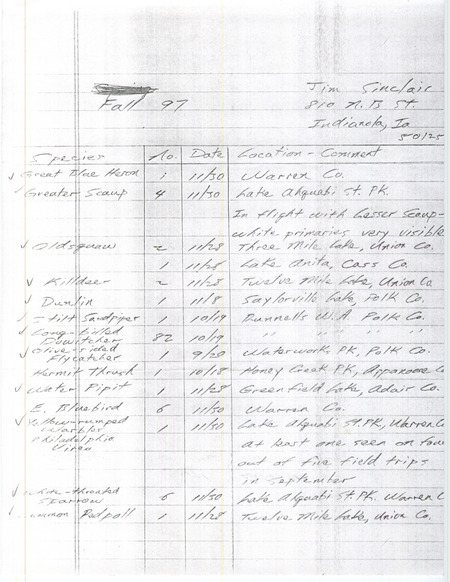 Fall 97
Jim Sinclair
810 N. B St.
Indianola, Ia
50125
Species No. Date Location - Comment
✓ Great Blue Heron 1 11/30 Warren Co.
✓ Greater Scaup 4 11/30 Lake Ahquabi St. PK.
In flight with Lesser Scaup-
white primaries very visible
✓ Oldsquaw 2 11/28 Three Mile Lake, Union Co.
1 11/28 Lake Anita, Cass Co.
✓ Killdeer 2 11/28 Twelve Mile Lake, Union Co
✓ Dunlin 1 11/8 Saylorville Lake, Polk Co.
✓ Stilt Sandpiper 1 10/19 Runnells W.A Polk Co.
✓ Long-billed
Dowitcher 82 10/19 " " " "
✓ Olive-sided
Flycatcher 1 9/20 Waterworks PK, Polk Co.
Hermit Thrush 1 10/18 Honey Creek PK, Appanoose Co
✓ Water Pipit 1 11/28 Greenfield Lake, Adair Co.
E. Bluebird 6 11/30 Warren Co.
✓ Yellow-rumped
Warbler 1 11/30 Lake Ahquabi St. PK, Warren Co
Philadelphia
Vireo
at least one seen on four
out of five field trips
in September
✓ White-throated
Sparrow 6 11/30 Lake Ahquabi St. PK. Warren C
✓ Common Redpoll 1 11/28 Twelve Mile Lake, Union Co.